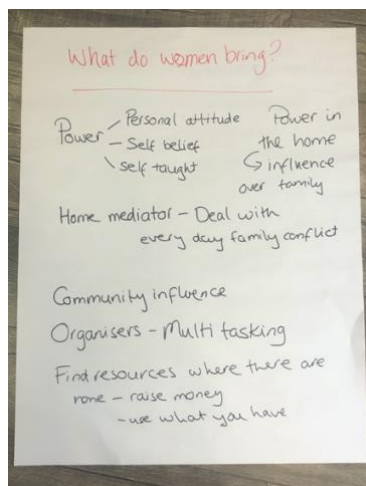 What do women bring?
Power - Personal attitude
- Self belief
- self taught
Power in
the home
↳ influence
over family
Home mediator - Deal with
every day family conflict
Community influence
Organisers - Multi tasking
Find resources where there are
none - raise money
- use what you have